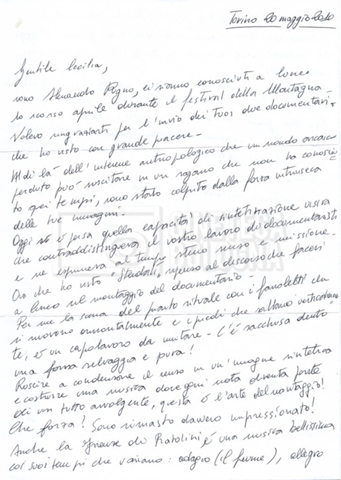 Torino 20 maggio 2010
Gentile Cecilia,
sono Alessandro ci siamo conosciuti a Cuneo
lo scorso aprile durante il festival della Montagna -
Volevo ringraziarti per l'invio dei tuoi due documentari -
che ho visto con grande piacere -
Al di là dell'interesse antropologico che un mondo ormai
perduto può suscitare in un ragazzo che non ha conosciu
to quei tempi, sono stato colpito dalla forza intrinseca
delle tue immagini.
Oggi si è persa quella capacità di sintetizzazione visiva
che contraddistingueva il vostro lavoro di documentaristi
e ne esprimeva al tempo stesso senso e missione.
Ora che ho visto Stendalì, ripenso al discorso che facevi
a Cuneo sul montaggio del documentario -
Per me la scena del pianto rituale con i fazzoletti che
si muovono orizzontalmente e i piedi che saltano verticalmen
te, è un capolavoro da imitare - C'è racchiusa dentro
una forza selvaggia e pura!
Riuscire a condensare il senso in un'immagine sintetica
e costruire una musica dove ogni nota diventa parte
di un tutto avvolgente, questa è l'arte del montaggio!
Che forza! Sono rimasto davvero impressionato!
Anche la Firenze di Pratolini è una musica bellissima
coi suoi tempi che variano: adagio (il fiume), allegro